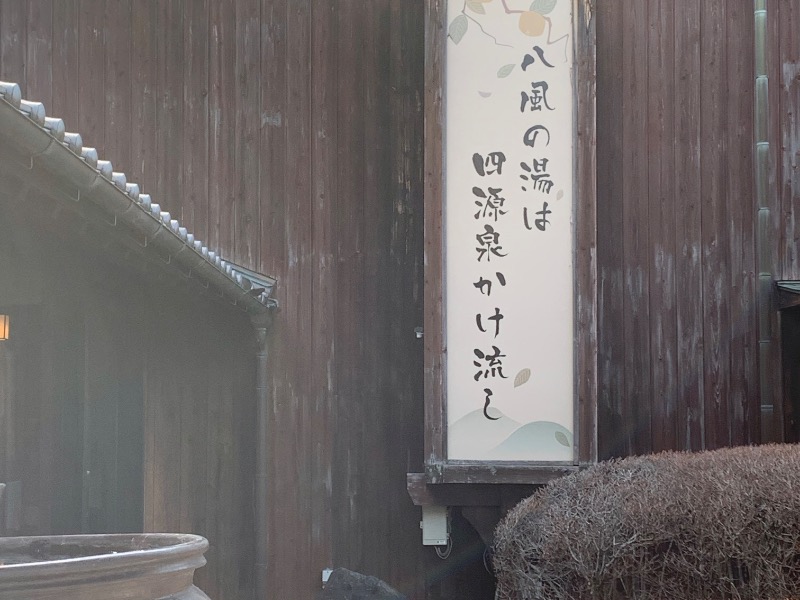 八風の湯は
四源泉かけ流し